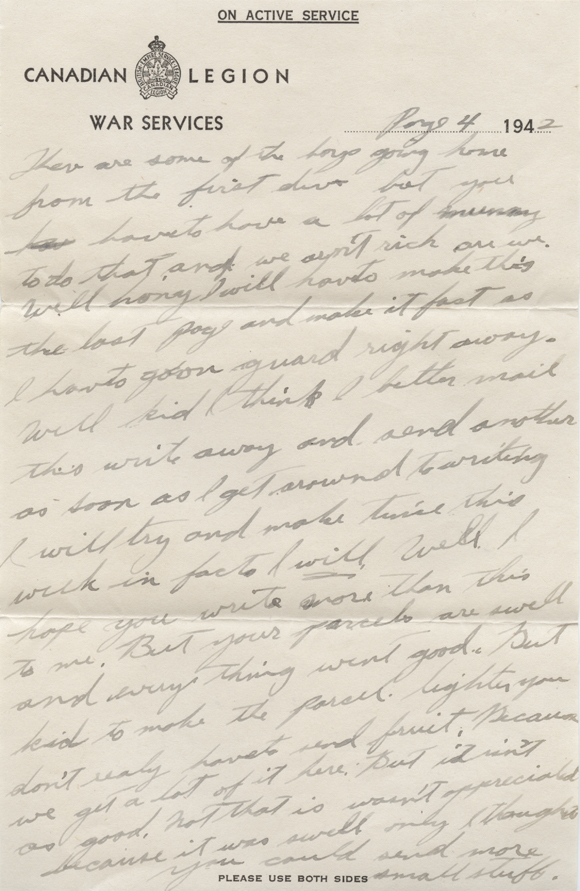 ON ACTIVE SERVICE
CANADIAN LEGION
WAR SERVICES
Page 4 1942
Thev are some of the boys going home
from the first div but you
haveto have a lot of
todo that and we arn't rich are we.
Well honey I will haveto make this
the last page and make it fast as
I haveto goon guard right away.
Well kid I think I better mail
this write away and send another
as soon as I get around to writing
I will try and make twice this
week in facto I will. Well I
hope you write more than this
to me. But your parcels are swell
and everything went good. But
kid to make the parcel lighter you
don't realy haveto send fruit. Because
we get a lot of it here. But it isn't
as good. Not that is wasn't appreciated
because it was swell only I thought
you could send more
small stuff.
PLEASE USE BOTH SIDES